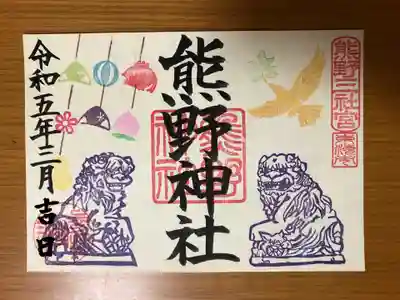 熊野三社宮
熊野神社
令和五年二月吉日